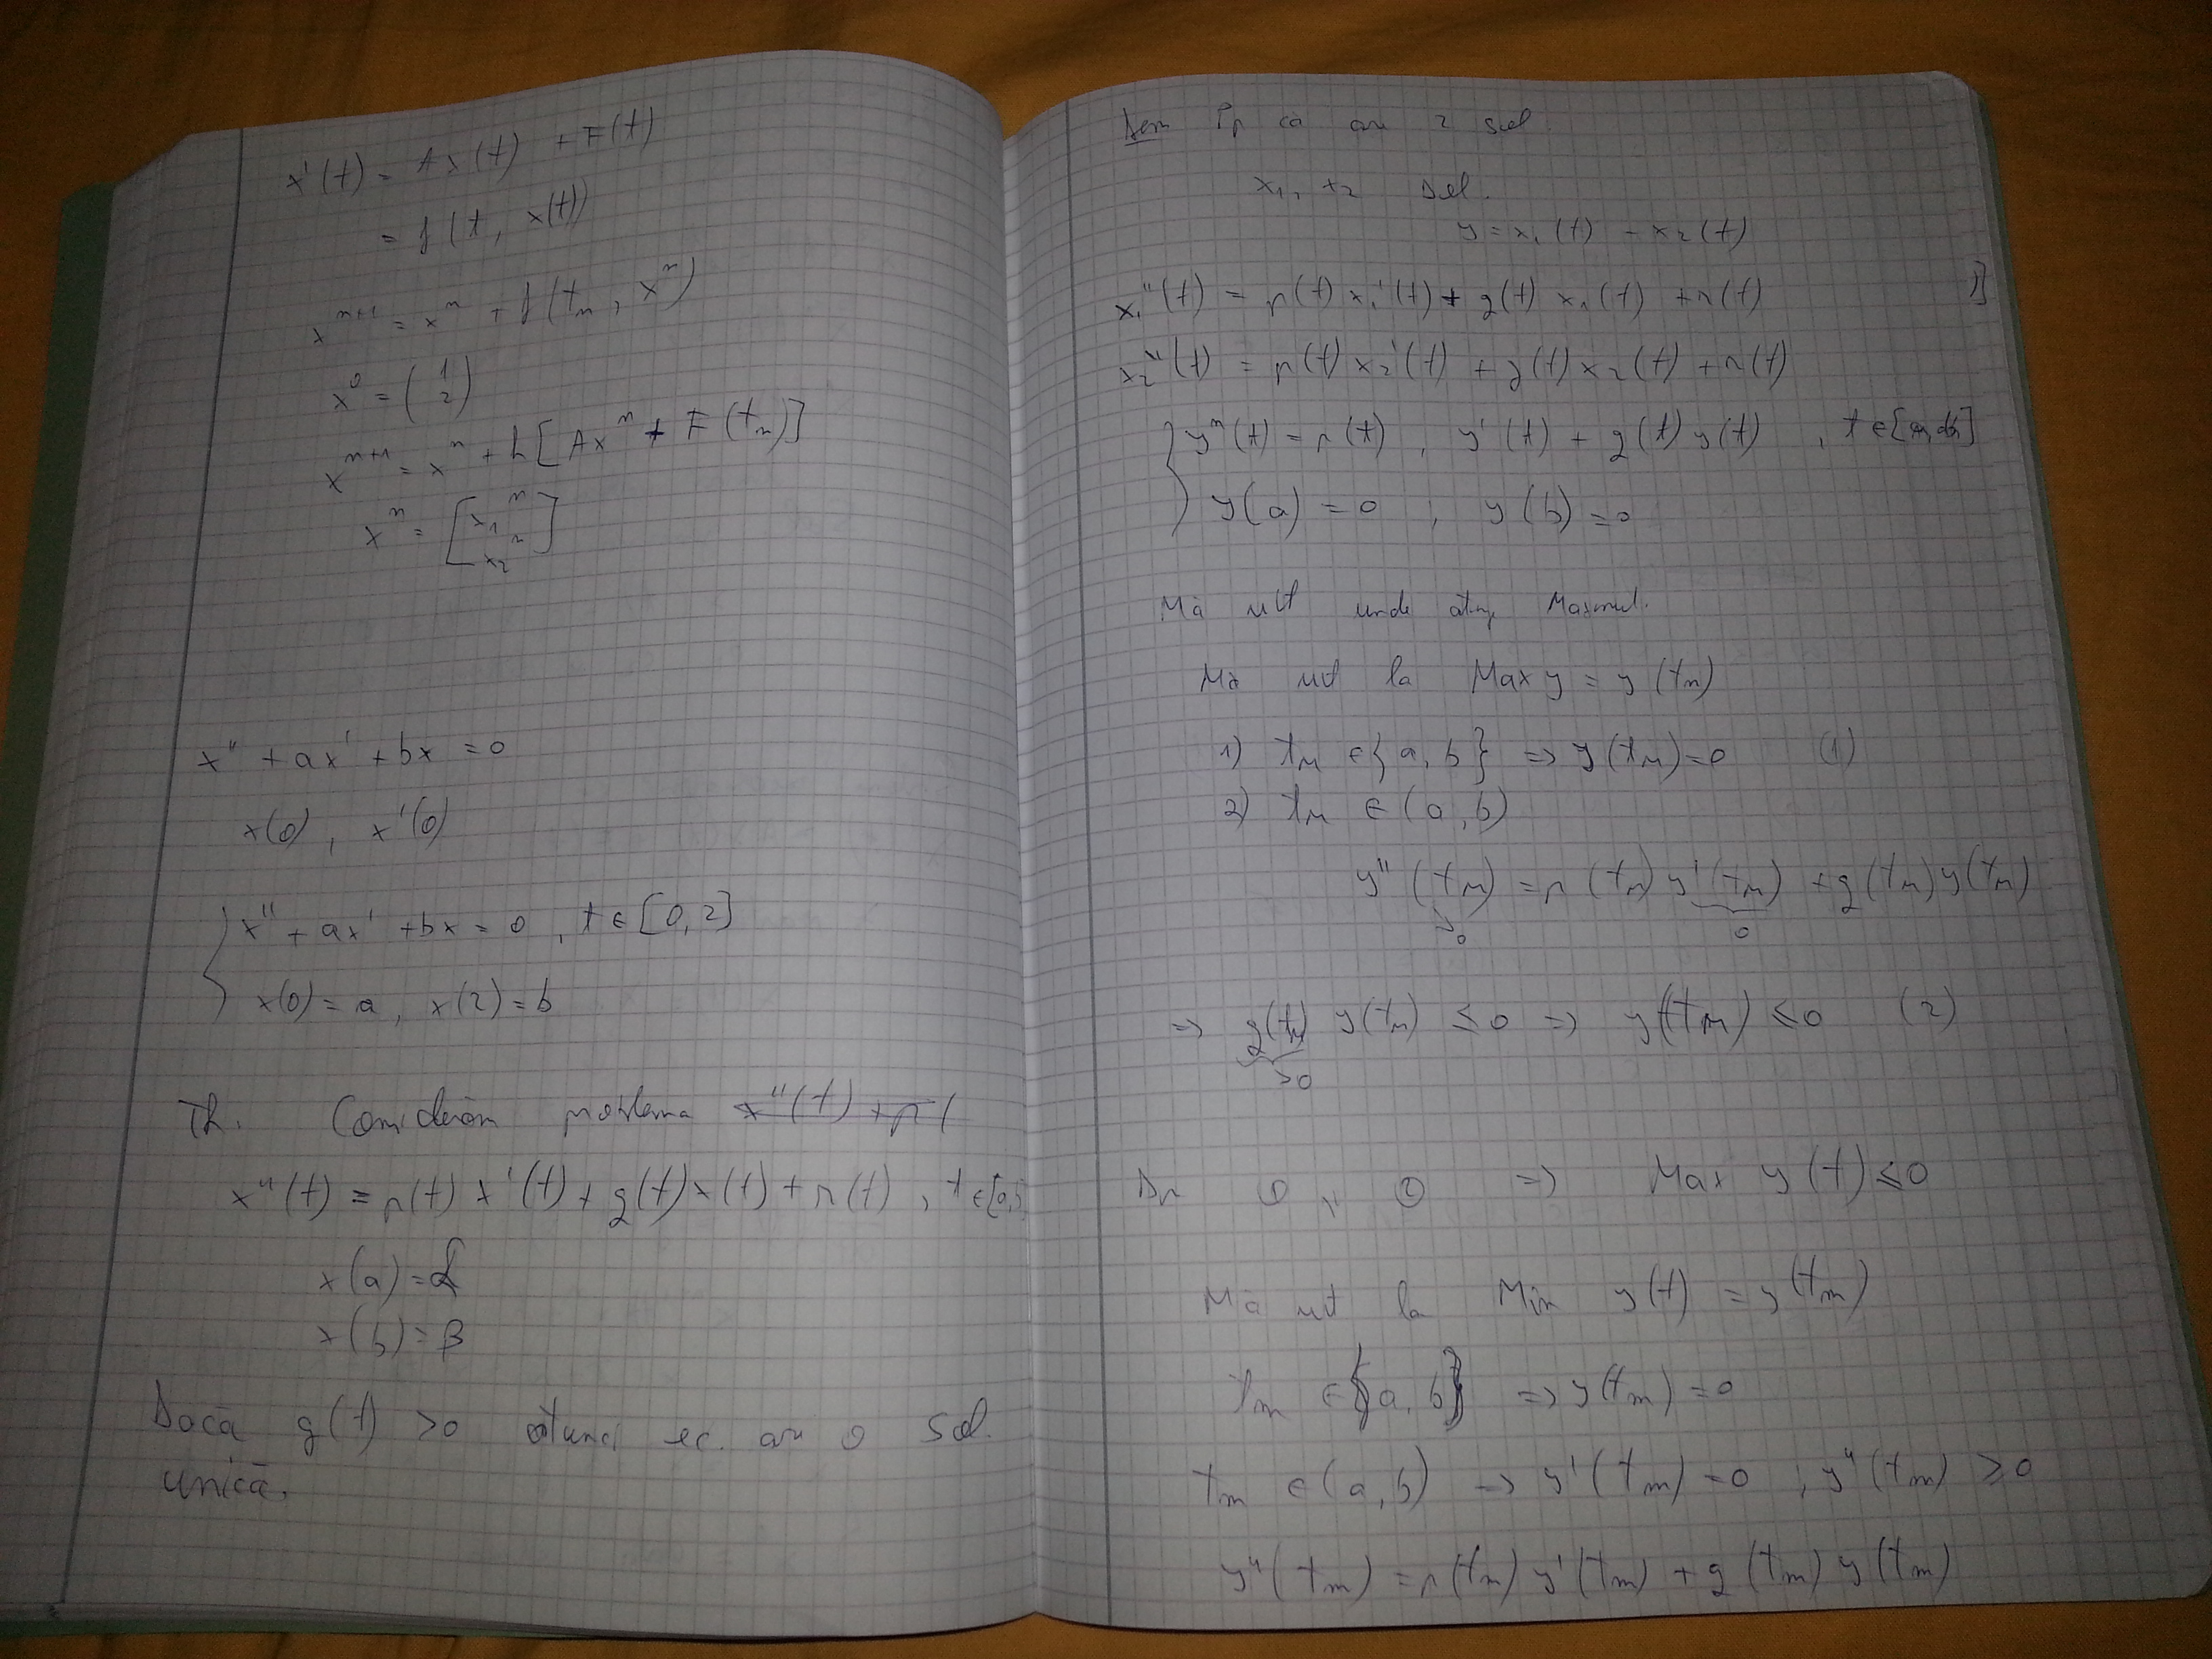 x'(t) = Ax(t) + F(t)
= f(t, x(t))
x^{n+1} = x^n + f(t_n, x^n)
x^0 = (1 2)
x^{n+1} = x^n + h[Ax^n + F(t_n)]
x^n = [x_1^n x_2^n]
x'' + ax' + bx = 0
x(0), x'(0)
x'' + ax' + bx = 0, t ∈ [0,2]
x(0) = a, x(2) = b
Th. Considerăm problema x''(t) + p(
x''(t) = p(t) x'(t) + q(t) x(t) + r(t), t ∈ [a,b
x(a) = α
x(b) = β
Dacă q(t) > 0 atunci ec. are o sol.
unică.
Dem Pp că are 2 sol.
x_1, x_2 sol.
y = x_1(t) - x_2(t)
x_1''(t) = p(t) x_1'(t) + q(t) x_1(t) + r(t)
x_2''(t) = p(t) x_2'(t) + q(t) x_2(t) + r(t)
y''(t) = p(t), y'(t) + q(t) y(t), t ∈
y(a) = 0, y(b) = 0
Mă uit unde ating Maximul.
Mă uit la Max y = y(t_M)
1) t_M ∈ {a, b} => y(t_M) = 0 (1)
2) t_M ∈ (a, b)
y''(t_M) = p(t_M) y'(t_M) + q(t_M) y(t_M)
0 0
=> q(t_M) y(t_M) ≤ 0 => y(t_M) ≤ 0 (2)
>0
Din ① și ② => Max y(t) ≤ 0
Mă uit la Min y(t) = y(t_m)
t_m ∈ {a, b} => y(t_m) = 0
t_m ∈ (a, b) => y'(t_m) = 0; y''(t_m) ≥ 0
y''(t_m) = p(t_m) y'(t_m) + q(t_m) y(t_m)